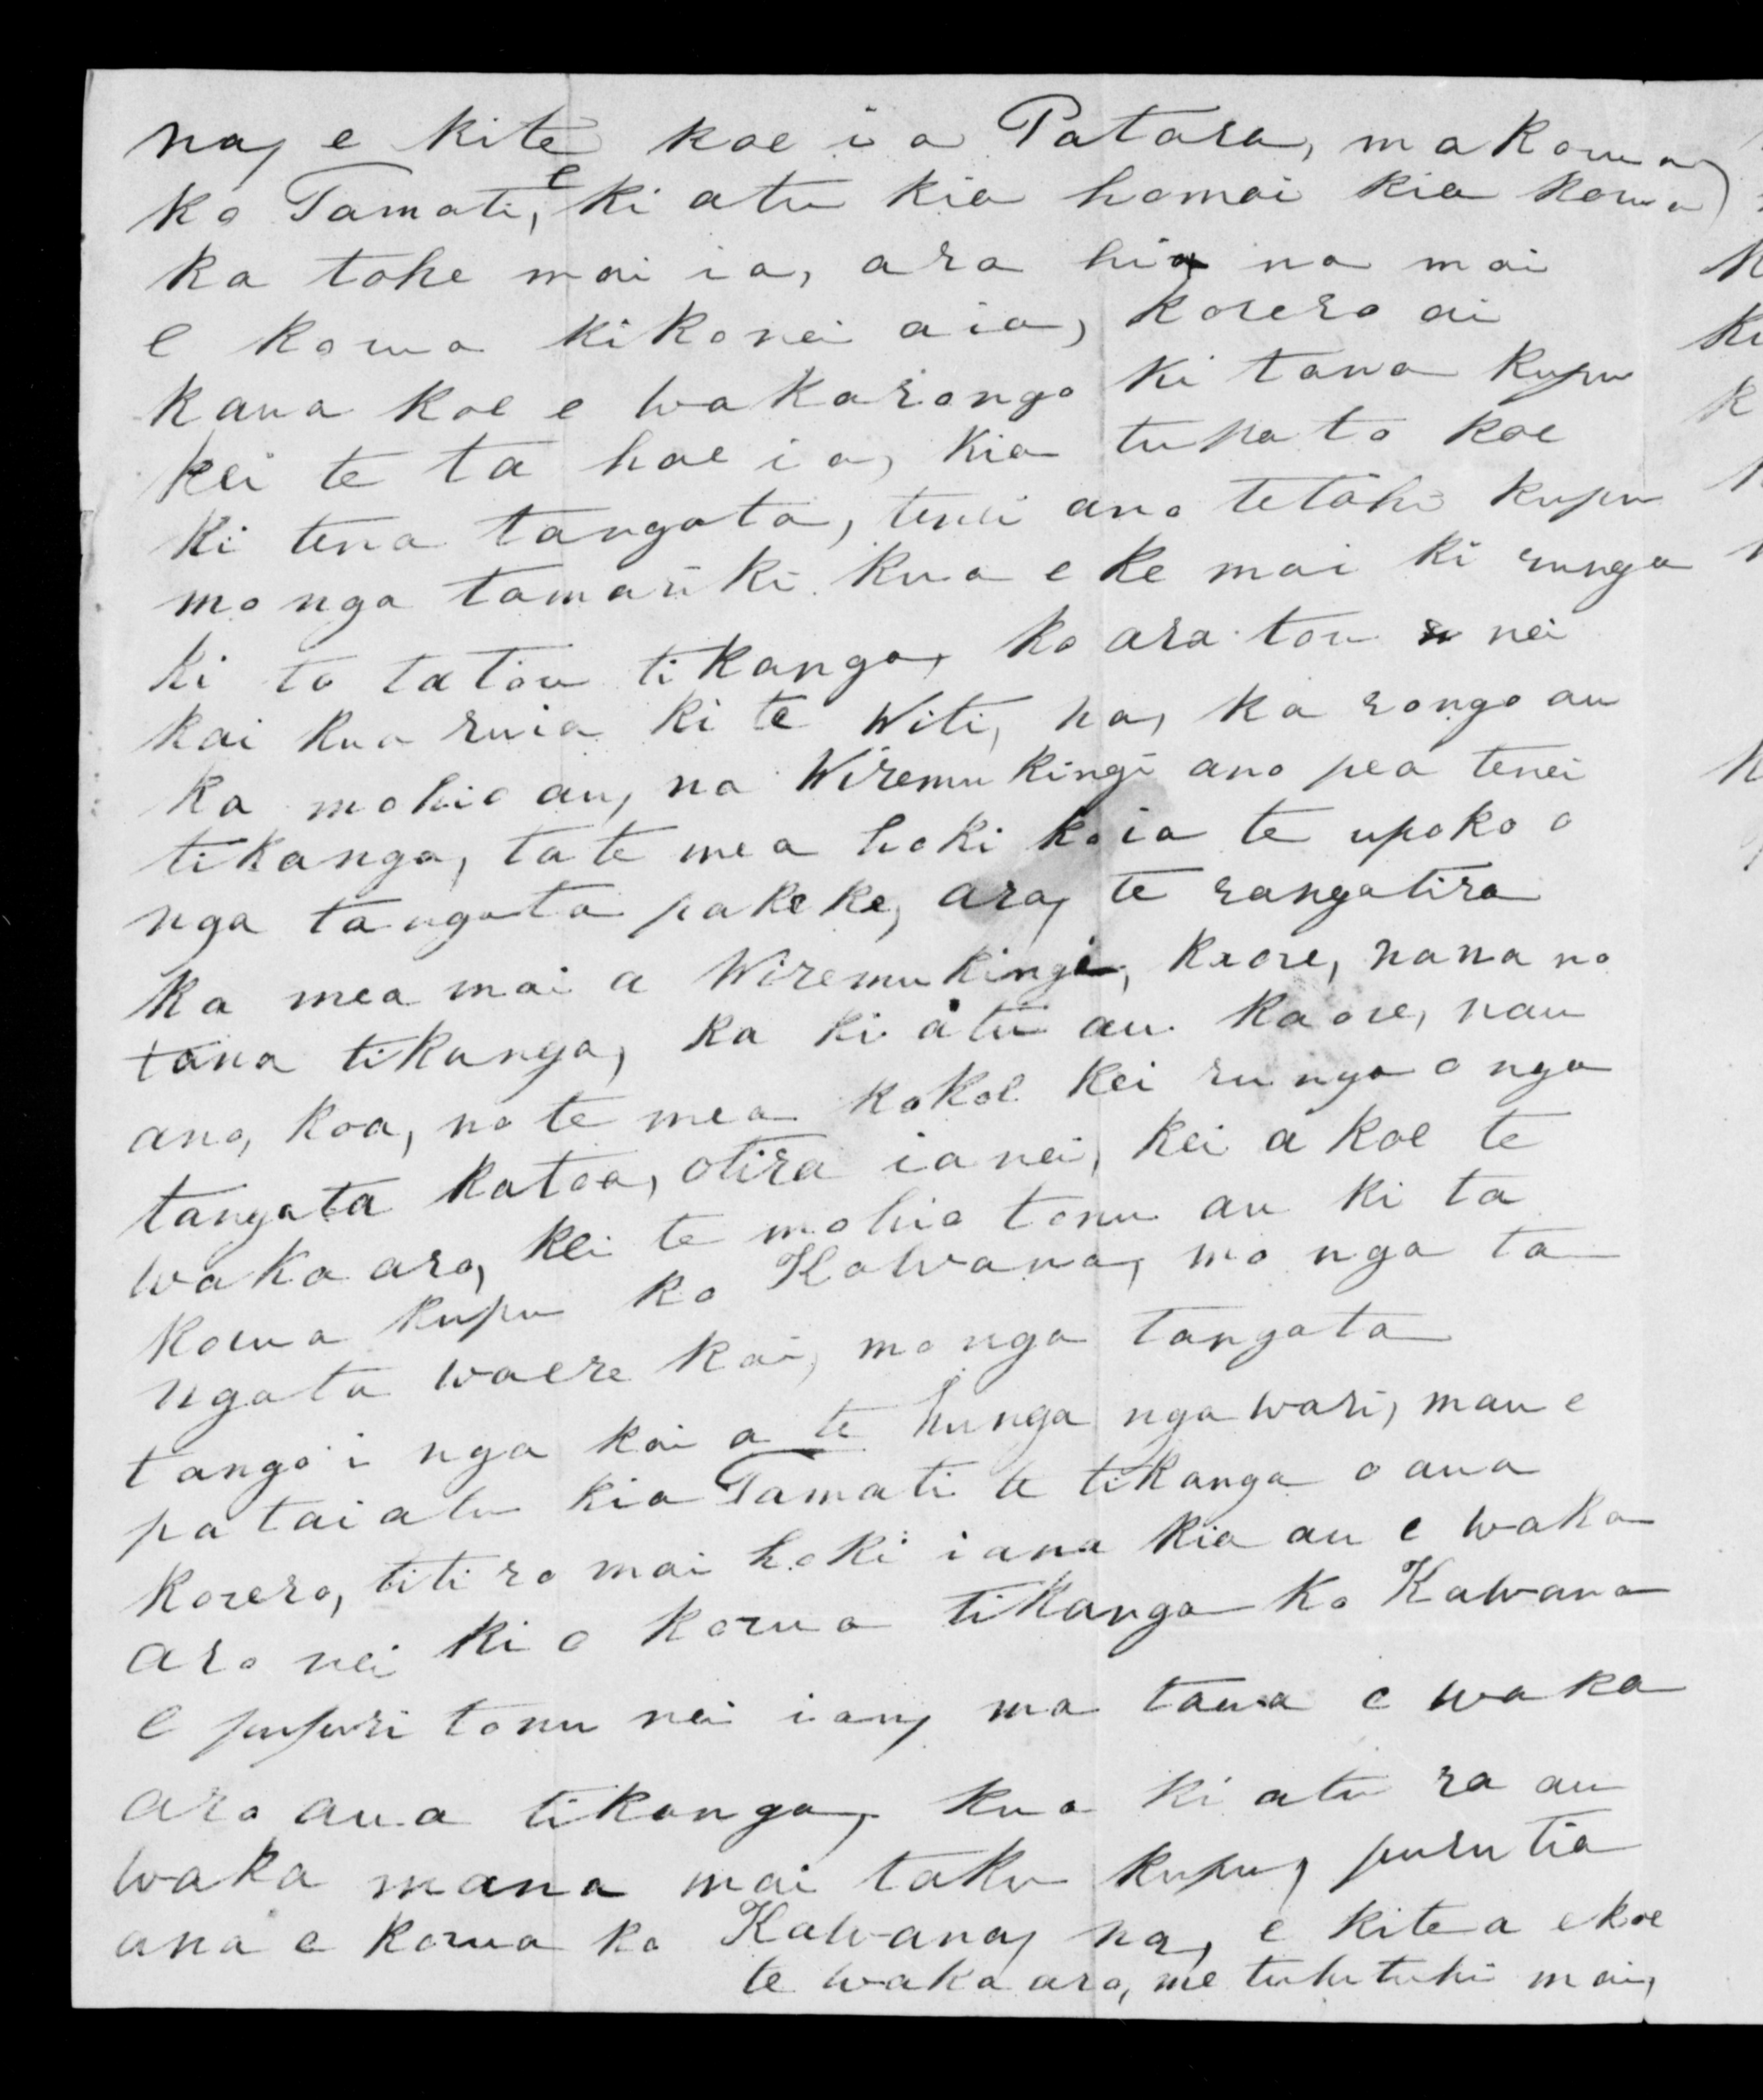 na, e kite koe i a Patara, ma korua
ko Tamati, e ki atu kia homai kia korua
ka tohe mai ia, ara hia na mai
e korua ki konei aia, korero ai
kaua koe e wakarongo ki tana kupu
kei te ta hae ia, kia tupato koe
ki tena tangata, tenei ano tetahi kupu
mo nga tamariki kua eke mai ki runga
ki to tatou tikanga, ko ara tou nei
kai kua ruia ki te Witi, na, ka rongo au
ka mohio au, na Wiremu kingi ano pea tenei
tikanga, ta te mea hoki ko ia te upoko o
nga tangata pakeke, ara, te rangatira
ka mea mai a Wiremu kingi, kaore, nana no
tana tikanga, ka ki atu au kaore, nau
ano, koa, no te mea ko koe kei runga o nga
tangata katoa, otira ia nei, kei a koe te
waka aro, kei te mohio tonu au ki ta
korua kupu ko Kawana, mo nga ta
ngata waere kai, mo nga tangata
tango i nga kai a te hunga nga wari, mau e
pa tai atu kia Tamati te tikanga o aua
korero, titi ro mai hoki i ana kia au e waka
aro nei ki o korua tikanga ko Kawana
e pupuri tonu nei i au, ma taua e waka
aro aua tikanga, kua ki atu ra au
waka mana mai taku kupu, purutia
ana e korua ko Kawana, na, e kitea e koe
te waka aro, me tuhi tuhi mai,